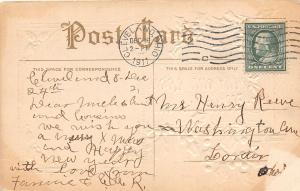 Post Card
CLEVELAND OHIO
DEC
1911
THIS SPACE FOR CORRESPONDENCE
THIS SPACE FOR ADDRESS
ONE CENT
Cleveland O Dec
24th
Dear Uncle
and Cousins
we wish you
a X mas
and Happy
new year
with love from
Mrs Henry Reeve
Washington
Lorain
Ohio